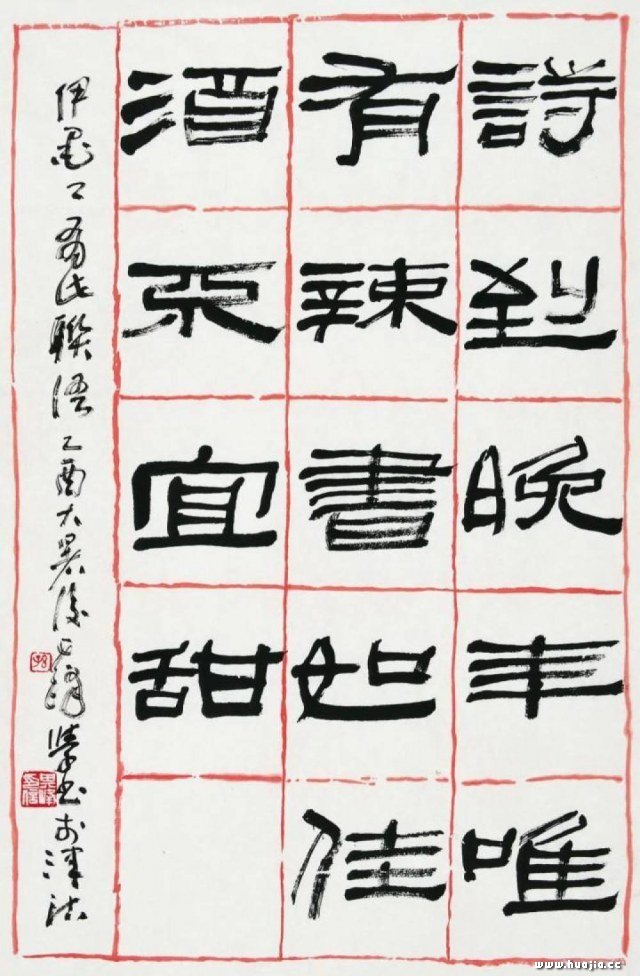 詩到晚年唯
有辣書如佳
酒不宜甜
伊墨卿有此聯語乙酉大暑後書於津沽
www.huajia.cc